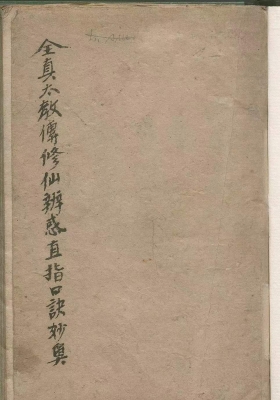 全真大教傳修仙辨惑直指口訣妙奧